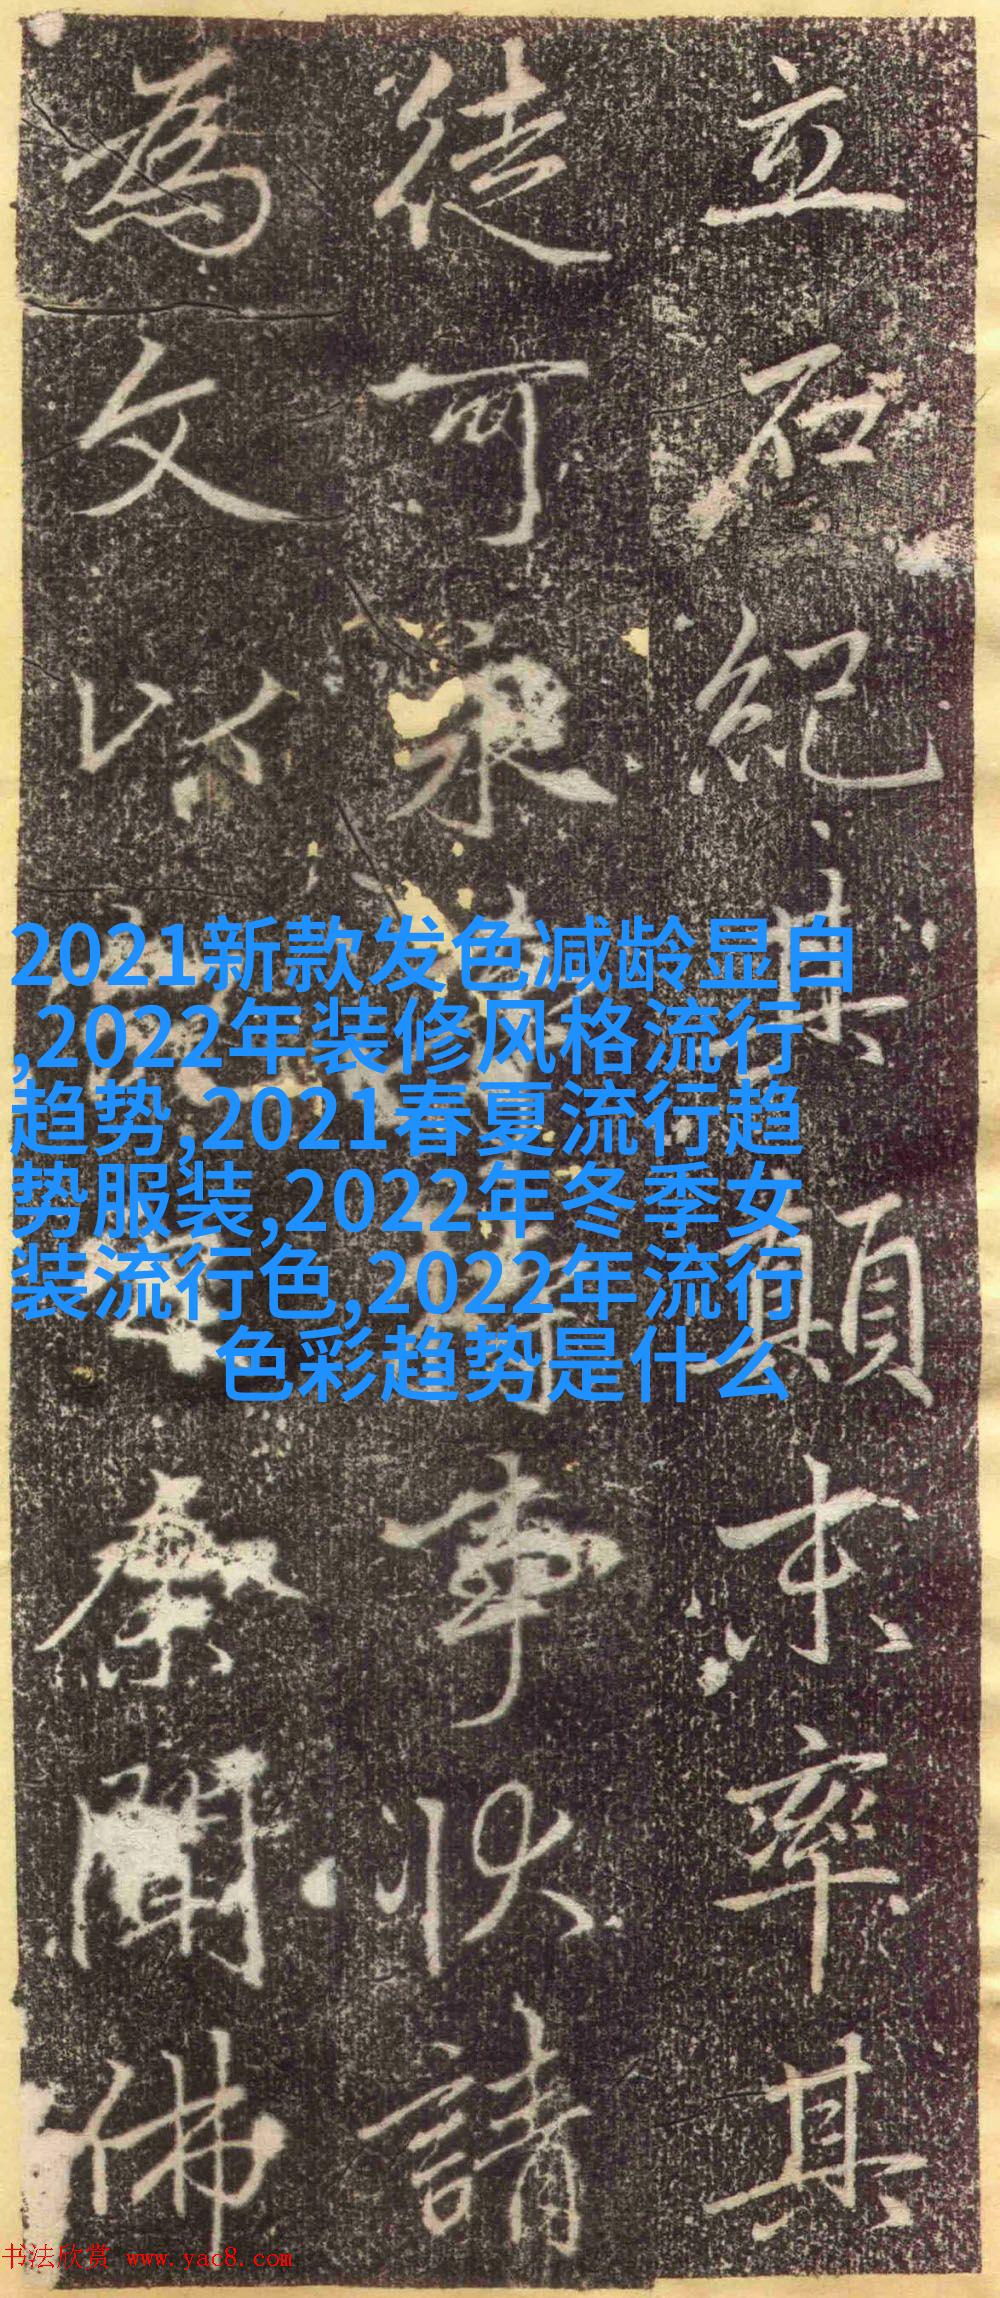 立石紀其顛末率其
徒可持事狀請
為文以余聞佛
2021新款发色减龄显白
,2022年装修风格流行
趋势,2021春夏流行趋
势服装,2022年冬季女
装流行色,2022年流行
色彩趋势是什么
书法欣赏 www.yac8.com